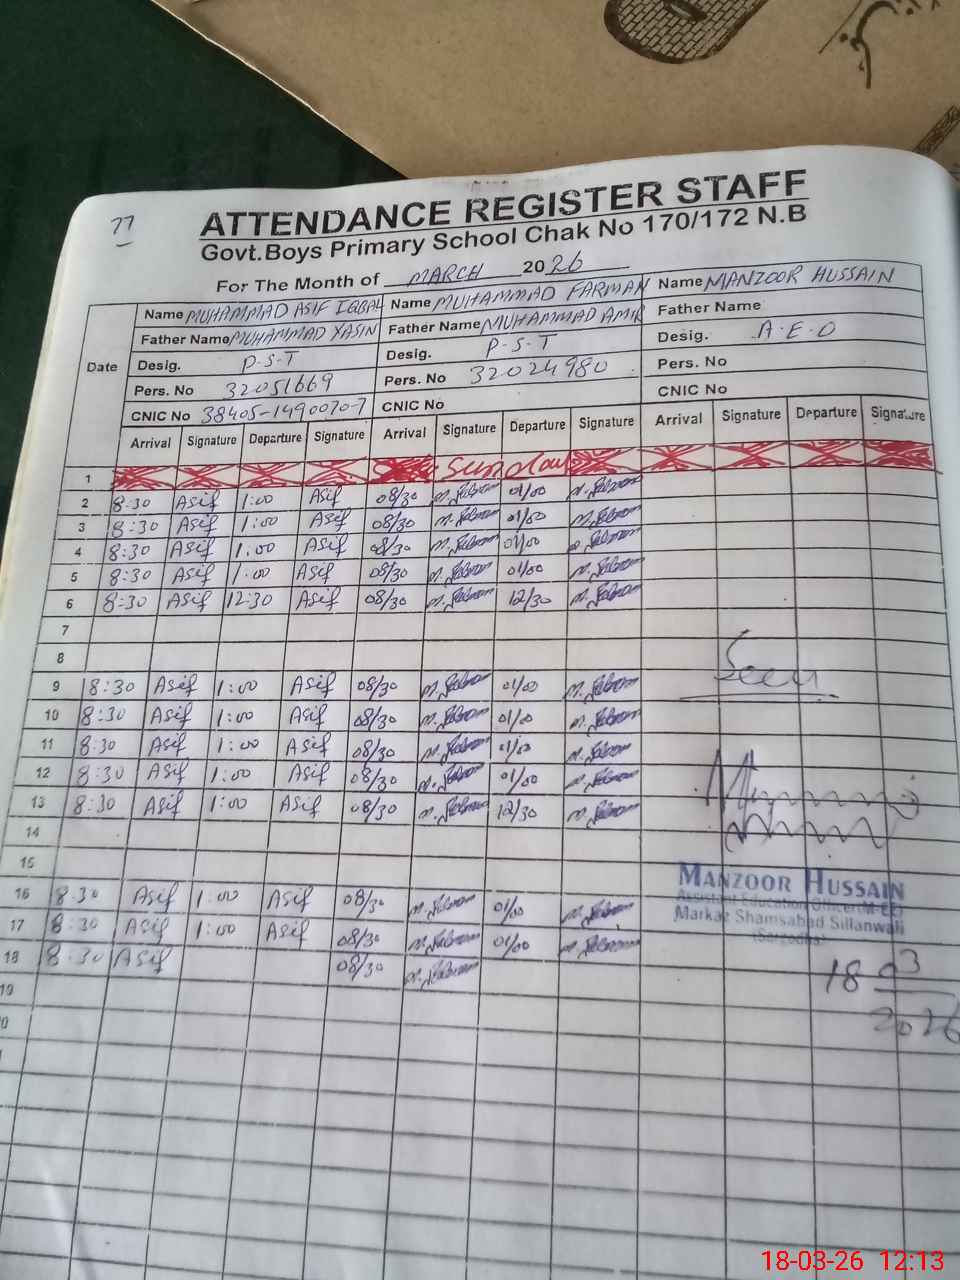 77
ATTENDANCE REGISTER STAFF
Govt.Boys Primary School Chak No 170/172 N.B
For The Month of MARCH 2026
Date
Name MUHAMMAD ASIF IQBAL Name MUHAMMAD FARMAN Name MANZOOR HUSSAIN
Father Name MUHAMMAD YASIN Father Name MUHAMMAD AMIR Father Name
Desig. P-S-T Desig. P-S-T Desig. A-E-O
Pers. No 32051669 Pers. No 32024980 Pers. No
CNIC No 38405-1490070-7 CNIC No CNIC No
Arrival Signature Departure Signature Arrival Signature Departure Signature Arrival Signature Departure Signature
1 Sunday
2 8:30 Asif 1:00 Asif 08/30 01/00
3 8:30 Asif 1:00 Asif 08/30 01/00
4 8:30 Asif 1:00 Asif 08/30 01/00
5 8:30 Asif 1:00 Asif 08/30 01/00
6 8:30 Asif 12:30 Asif 08/30 12/30
7
8
9 8:30 Asif 1:00 Asif 08/30 01/00
10 8:30 Asif 1:00 Asif 08/30 01/00
11 8:30 Asif 1:00 Asif 08/30 01/00
12 8:30 Asif 1:00 Asif 08/30 01/00
13 8:30 Asif 1:00 Asif 08/30 12/30
14
15
16 8:30 Asif 1:00 Asif 08/30 01/00
17 8:30 Asif 1:00 Asif 08/30 01/00
18 8:30 Asif 08/30
19
Seen
MANZOOR HUSSAIN
Assistant Education Officer (M-EE)
Markaz Shamsabad Sillanwali
(Sargodha)
18 03
2026
18-03-26 12:13